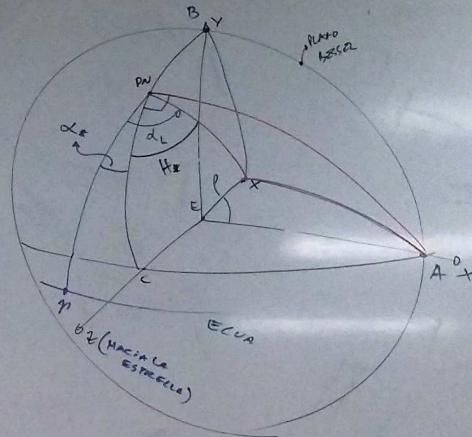 B Y
PLANO
BESSEL
PN
α*
αL
H*
X
E
ρ
A
X
C
γ
ECUA
Z (HACIA LA
ESTRELLA)